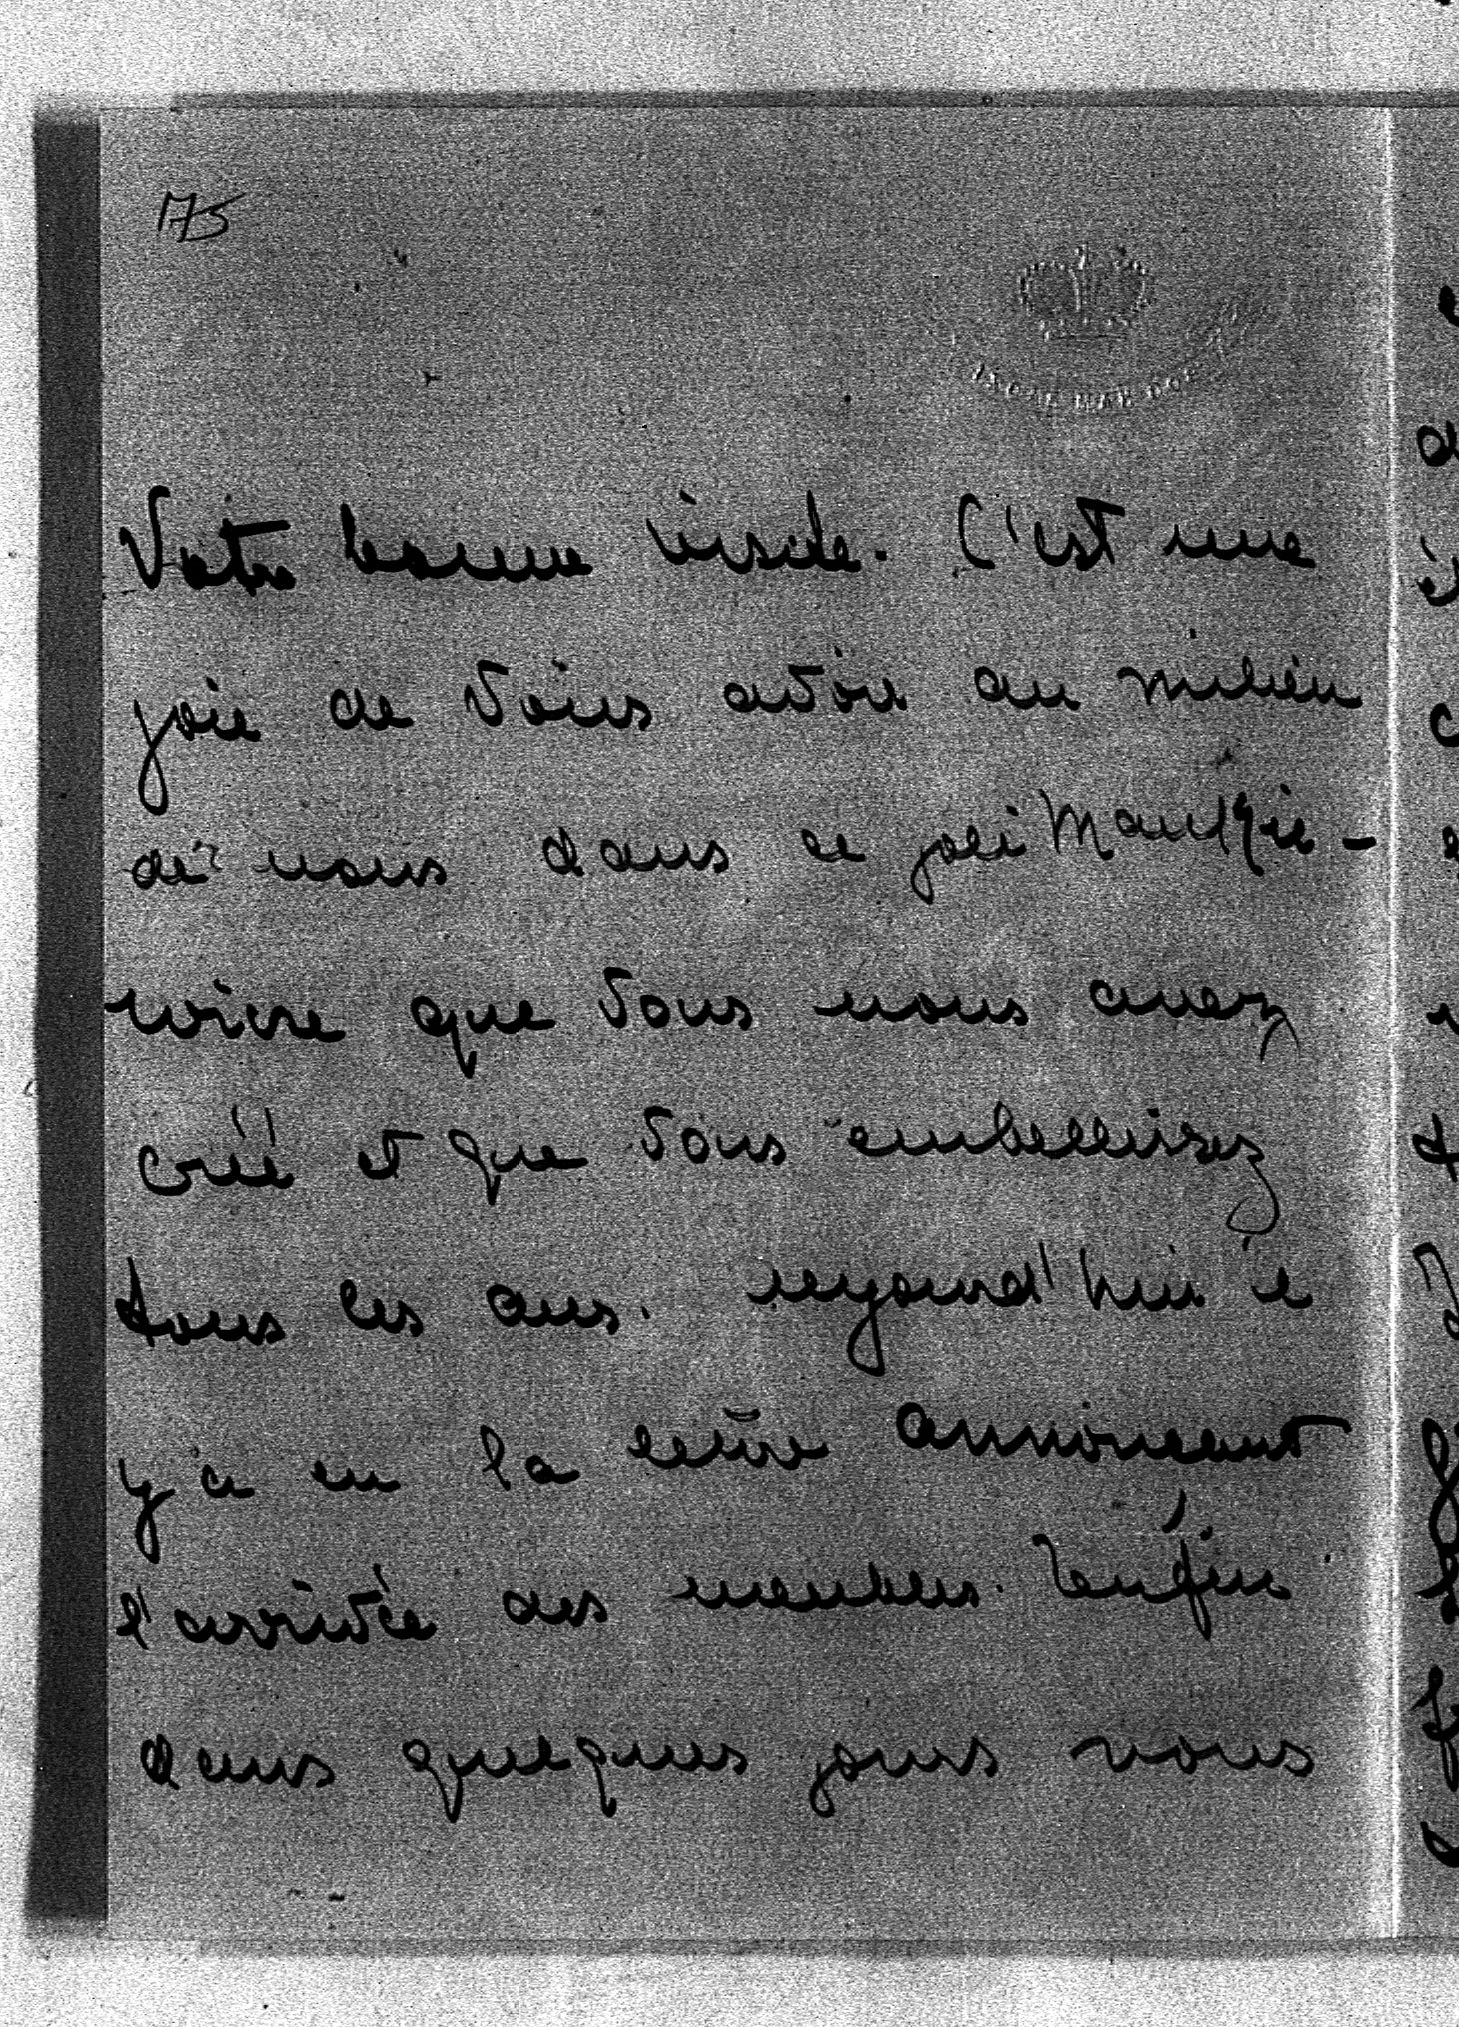 175
Votre bonne visite. C'est une
joie de vous avoir au milieu
de nous dans ce joli
que vous nous avez
créé et que vous embellissez
tous les ans. aujourd'hui il
y a eu la lettre annonceant
l'arrivée des meubles. Enfin
dans quelques jours nous